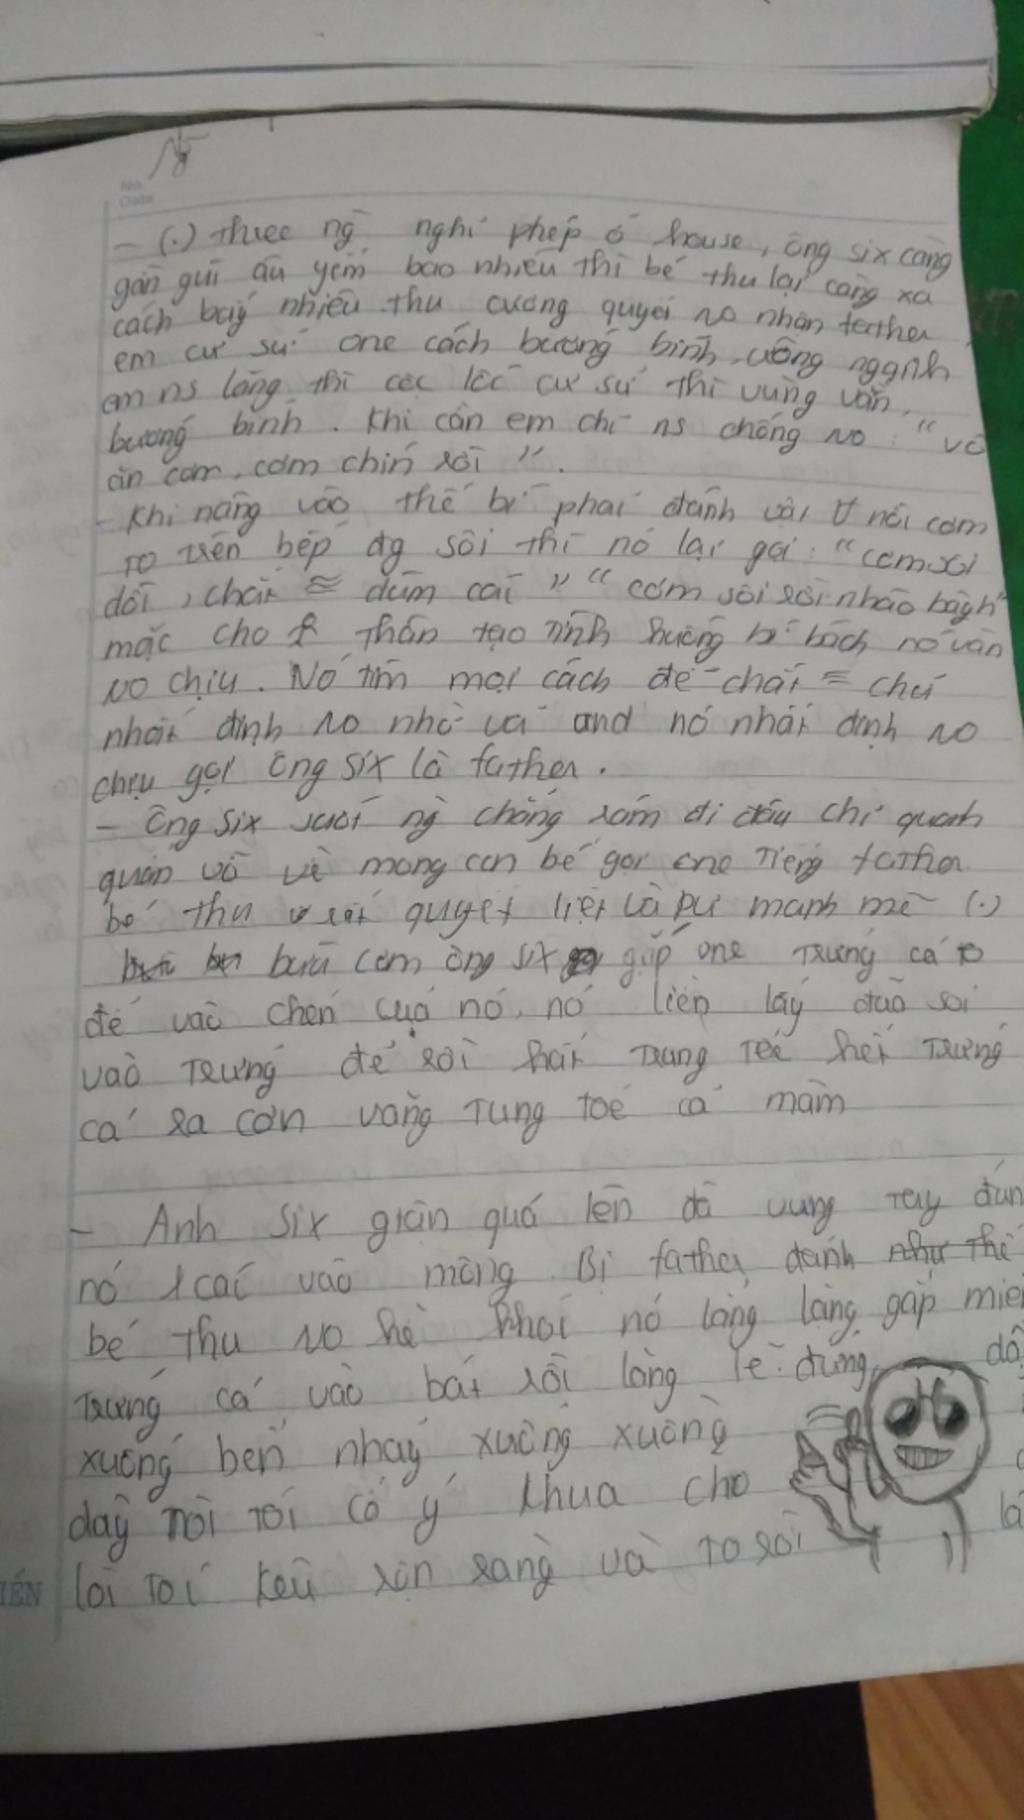 No.
Date
- (.) three ng nghỉ phép ở house, ông six càng
gần gũi âu yếm bao nhiêu thì bé thu lại càng xa
cách bấy nhiêu. thu cương quyết no nhận father
em cư sử one cách bướng bỉnh,
em ns lắng thì các lốc cư sử thì vùng vằn,
bướng bỉnh. Khi cần em chỉ ns chổng no: "vô
ăn cơm, cơm chín rồi".
- Khi nắng vào thế bí phải đánh vài nồi cơm
to trên bếp đg sôi thì nó lại gọi: "cơm sôi
dồi, chắt ≈ dùm cái" "cơm sôi rồi nhão bây h"
mặc cho thần tạo tình huống bí bách nó vẫn
no chịu. Nó tìm mọi cách để chắt ≈ chứ
nhất định no nhờ vả and nó nhất định no
chịu gọi ông six là father.
- Ông six suốt ng chẳng rám đi đâu chỉ quanh
quẩn vỗ về mong con bé gọi one tiếng father
bé thu quyết liệt là pư mạnh mẽ (.)
bữa cơm ông six gắp one trứng cá to
để vào chén của nó, nó liền lấy đũa soi
vào trứng để rồi hất trung téc hết trứng
cá ra cơn vang tung toé cả mâm
- Anh six giận quá lên đã vung tay đán
nó 1 cái vào mông. Bị father đánh như thế
bé thu no hề khóc nó lẳng lặng gắp miến
trứng cá vào bát rồi lẳng lẽ đứng, dậ
xuống bến nhảy xuồng xuồng
dây rồi rối cố ý khua cho
lòi tói kêu rộn ràng và to rồi lấ